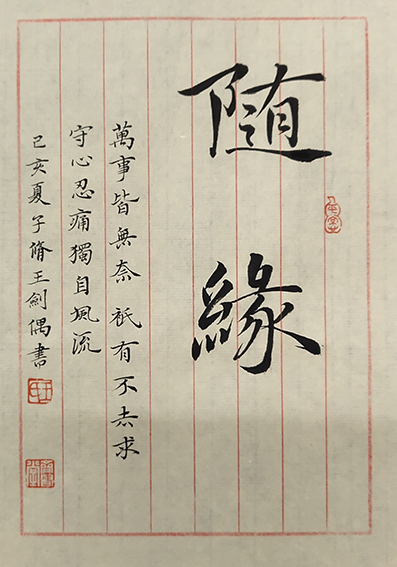 随緣
萬事皆無奈 祇有不去求
守心忍痛獨自風流
己亥夏子脩王劍偶書